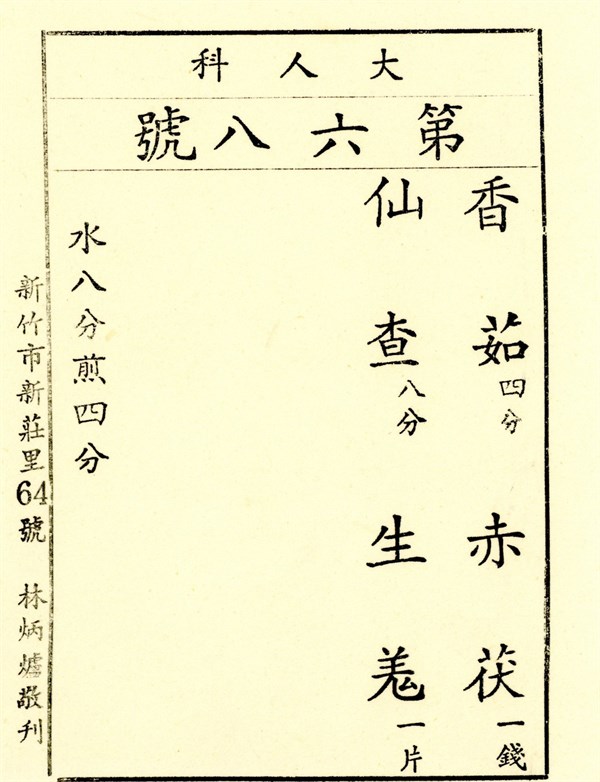 大人科
第六八號
香茹四分 赤茯一錢
仙查八分 生羗一片
水八分煎四分
新竹市新莊里64號 林炳爐敬刊